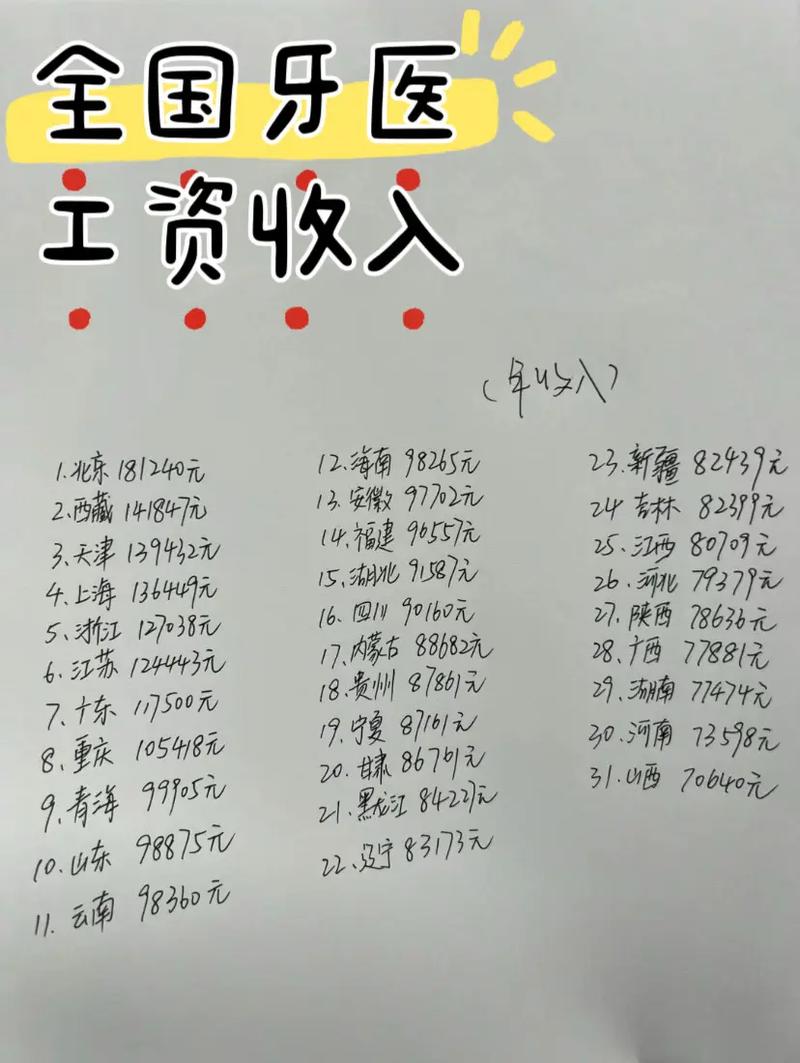 全国牙医
工资收入
(年收入)
1.北京 181240元
2.西藏 141847元
3.天津 139432元
4.上海 136449元
5.浙江 127038元
6.江苏 124443元
7.广东 117500元
8.重庆 105418元
9.青海 99905元
10.山东 98875元
11.云南 98360元
12.海南 98265元
13.安徽 97702元
14.福建 96557元
15.湖北 91587元
16.四川 90160元
17.内蒙古 88682元
18.贵州 87861元
19.宁夏 87161元
20.甘肃 86761元
21.黑龙江 84227元
22.辽宁 83173元
23.新疆 82439元
24 吉林 82399元
25.江西 80709元
26.河北 79379元
27.陕西 78636元
28.广西 77881元
29.湖南 77474元
30.河南 73598元
31.山西 70640元